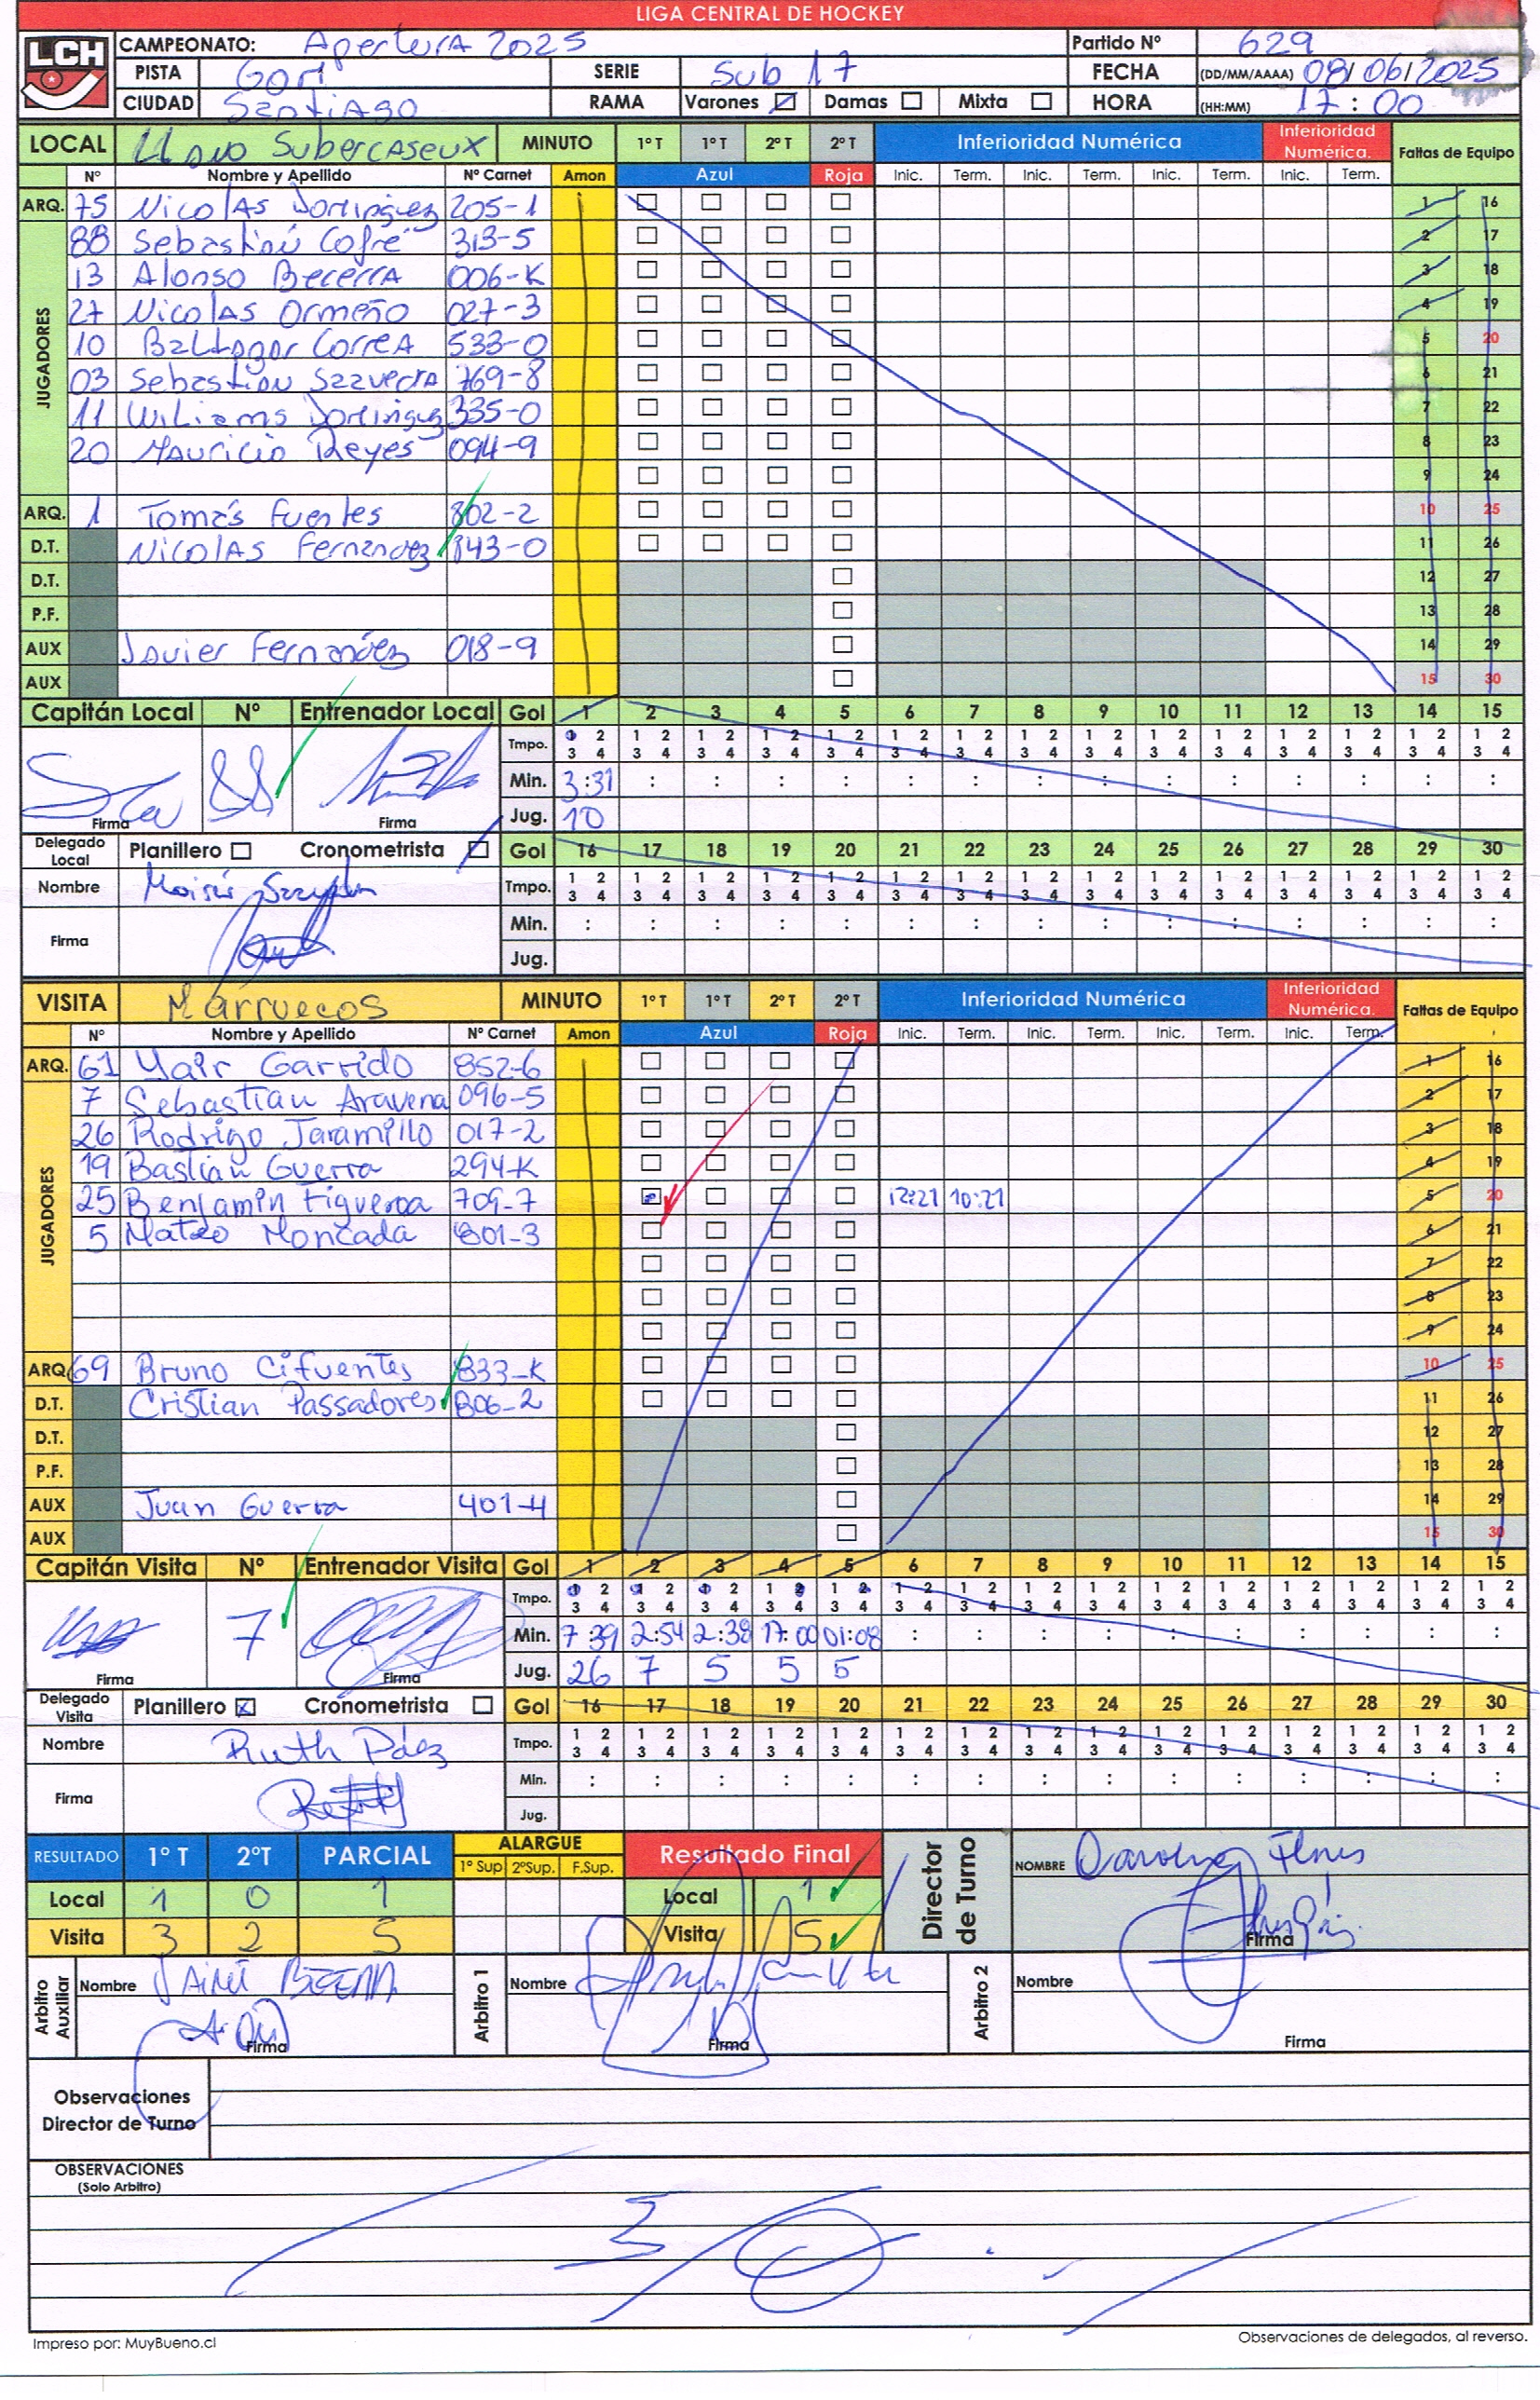 LIGA CENTRAL DE HOCKEY
LCH
CAMPEONATO: Apertura 2025 Partido Nº 629
PISTA Gori SERIE Sub 17 FECHA (DD/MM/AAAA) 08/06/2025
CIUDAD Santiago RAMA Varones Damas Mixta HORA (HH:MM) 17:00
LOCAL Llano Subercaseux MINUTO 1º T 1º T 2º T 2º T Inferioridad Numérica Inferioridad Numérica. Faltas de Equipo
Nº Nombre y Apellido Nº Carnet Amon Azul Roja Inic. Term. Inic. Term. Inic. Term. Inic. Term.
ARQ. 75 Nicolas Dominguez 205-1 1 16
JUGADORES
88 Sebastian Cofré 313-5 2 17
13 Alonso Becerra 006-K 3 18
27 Nicolas Ormeño 027-3 4 19
10 Baltazar Correa 533-0 5 20
03 Sebastian Saavedra 769-8 6 21
11 Wiliams Dominguez 335-0 7 22
20 Mauricio Reyes 094-9 8 23
9 24
ARQ. 1 Tomás Fuentes 802-2 10 25
D.T. Nicolas Fernandez 843-0 11 26
D.T. 12 27
P.F. 13 28
AUX Javier Fernandez 018-9 14 29
AUX 15 30
Capitán Local Nº Entrenador Local Gol 1 2 3 4 5 6 7 8 9 10 11 12 13 14 15
Tmpo. 1 2 1 2 1 2 1 2 1 2 1 2 1 2 1 2 1 2 1 2 1 2 1 2 1 2 1 2 1 2
3 4 3 4 3 4 3 4 3 4 3 4 3 4 3 4 3 4 3 4 3 4 3 4 3 4 3 4 3 4
88 Min. 3:31 : : : : : : : : : : : : : :
Firma Firma Jug. 10
Delegado Local Planillero Cronometrista Gol 16 17 18 19 20 21 22 23 24 25 26 27 28 29 30
Nombre Moisés Tmpo. 1 2 1 2 1 2 1 2 1 2 1 2 1 2 1 2 1 2 1 2 1 2 1 2 1 2 1 2 1 2
3 4 3 4 3 4 3 4 3 4 3 4 3 4 3 4 3 4 3 4 3 4 3 4 3 4 3 4 3 4
Firma Min. : : : : : : : : : : : : : : :
Jug.
VISITA Marruecos MINUTO 1º T 1º T 2º T 2º T Inferioridad Numérica Inferioridad Numérica. Faltas de Equipo
Nº Nombre y Apellido Nº Carnet Amon Azul Roja Inic. Term. Inic. Term. Inic. Term. Inic. Term.
ARQ. 61 Yair Garrido 852-6 1 16
JUGADORES
7 Sebastian Aravena 096-5 2 17
26 Rodrigo Jaramillo 017-2 3 18
19 Bastian Guerra 294-K 4 19
25 Benjamin Figueroa 709-7 12:21 10:21 5 20
5 Mateo Moncada 801-3 6 21
7 22
8 23
9 24
ARQ 69 Bruno Cifuentes 833-K 10 25
D.T. Cristian Passadores 806-2 11 26
D.T. 12 27
P.F. 13 28
AUX Juan Guerra 401-4 14 29
AUX 15 30
Capitán Visita Nº Entrenador Visita Gol 1 2 3 4 5 6 7 8 9 10 11 12 13 14 15
Tmpo. 1 2 1 2 1 2 1 2 1 2 1 2 1 2 1 2 1 2 1 2 1 2 1 2 1 2 1 2 1 2
3 4 3 4 3 4 3 4 3 4 3 4 3 4 3 4 3 4 3 4 3 4 3 4 3 4 3 4 3 4
7 Min. 7:39 2:54 2:38 17:00 01:08 : : : : : : : : : :
Firma Firma Jug. 26 7 5 5 5
Delegado Visita Planillero Cronometrista Gol 16 17 18 19 20 21 22 23 24 25 26 27 28 29 30
Nombre Ruth Páez Tmpo. 1 2 1 2 1 2 1 2 1 2 1 2 1 2 1 2 1 2 1 2 1 2 1 2 1 2 1 2 1 2
3 4 3 4 3 4 3 4 3 4 3 4 3 4 3 4 3 4 3 4 3 4 3 4 3 4 3 4 3 4
Firma Min. : : : : : : : : : : : : : : :
Jug.
RESULTADO 1º T 2ºT PARCIAL ALARGUE 1º Sup 2ºSup. F.Sup. Resultado Final Director de Turno NOMBRE
Local 1 0 1 Local 1
Visita 3 2 5 Visita 5 Firma
Arbitro Auxiliar Nombre Arbitro 1 Nombre Arbitro 2 Nombre
Firma Firma Firma
Observaciones
Director de Turno
OBSERVACIONES
(Solo Arbitro)
Impreso por: MuyBueno.cl Observaciones de delegados, al reverso.